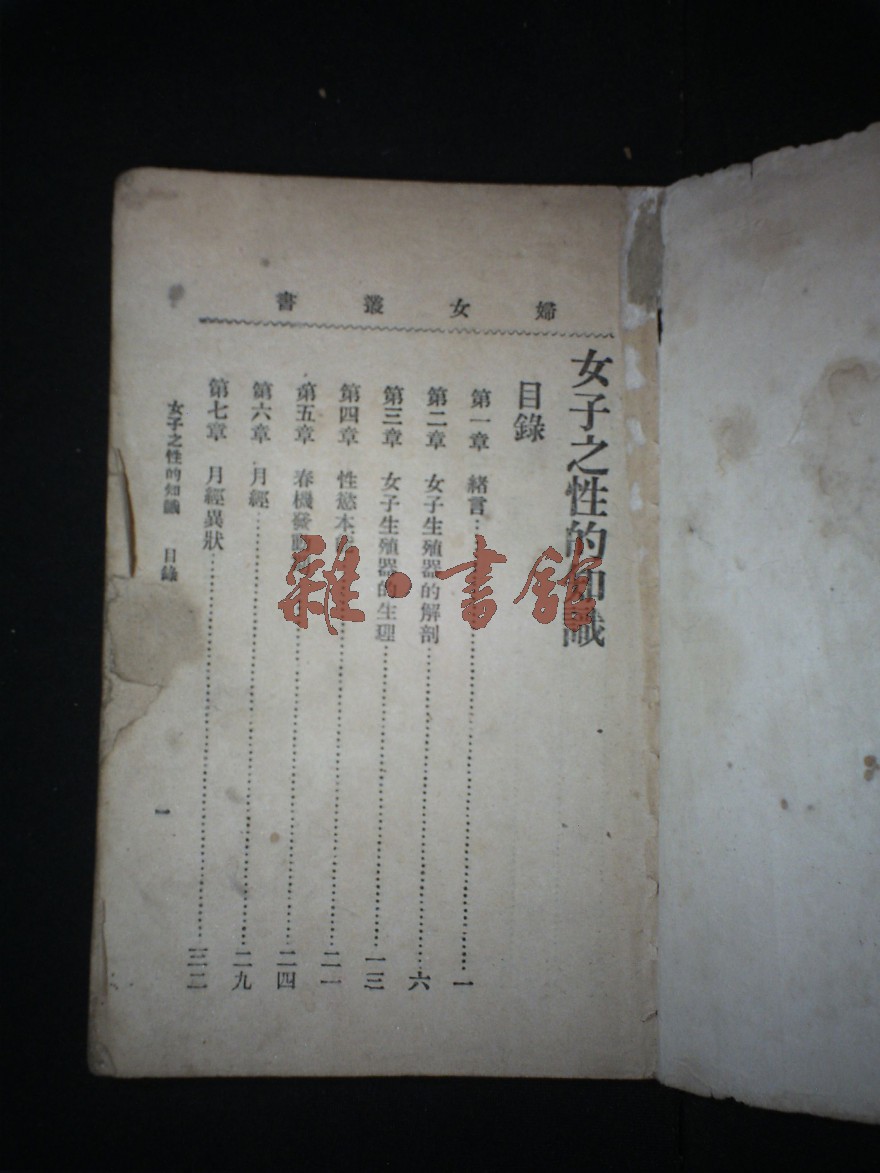 婦女叢書
女子之性的知識
目錄
第一章 緒言……一
第二章 女子生殖器的解剖……六
第三章 女子生殖器的生理……一三
第四章 性慾本……二一
第五章 春機發動……二四
第六章 月經……二九
第七章 月經異狀……三二
女子之性的知識 目錄
一
雜·書館